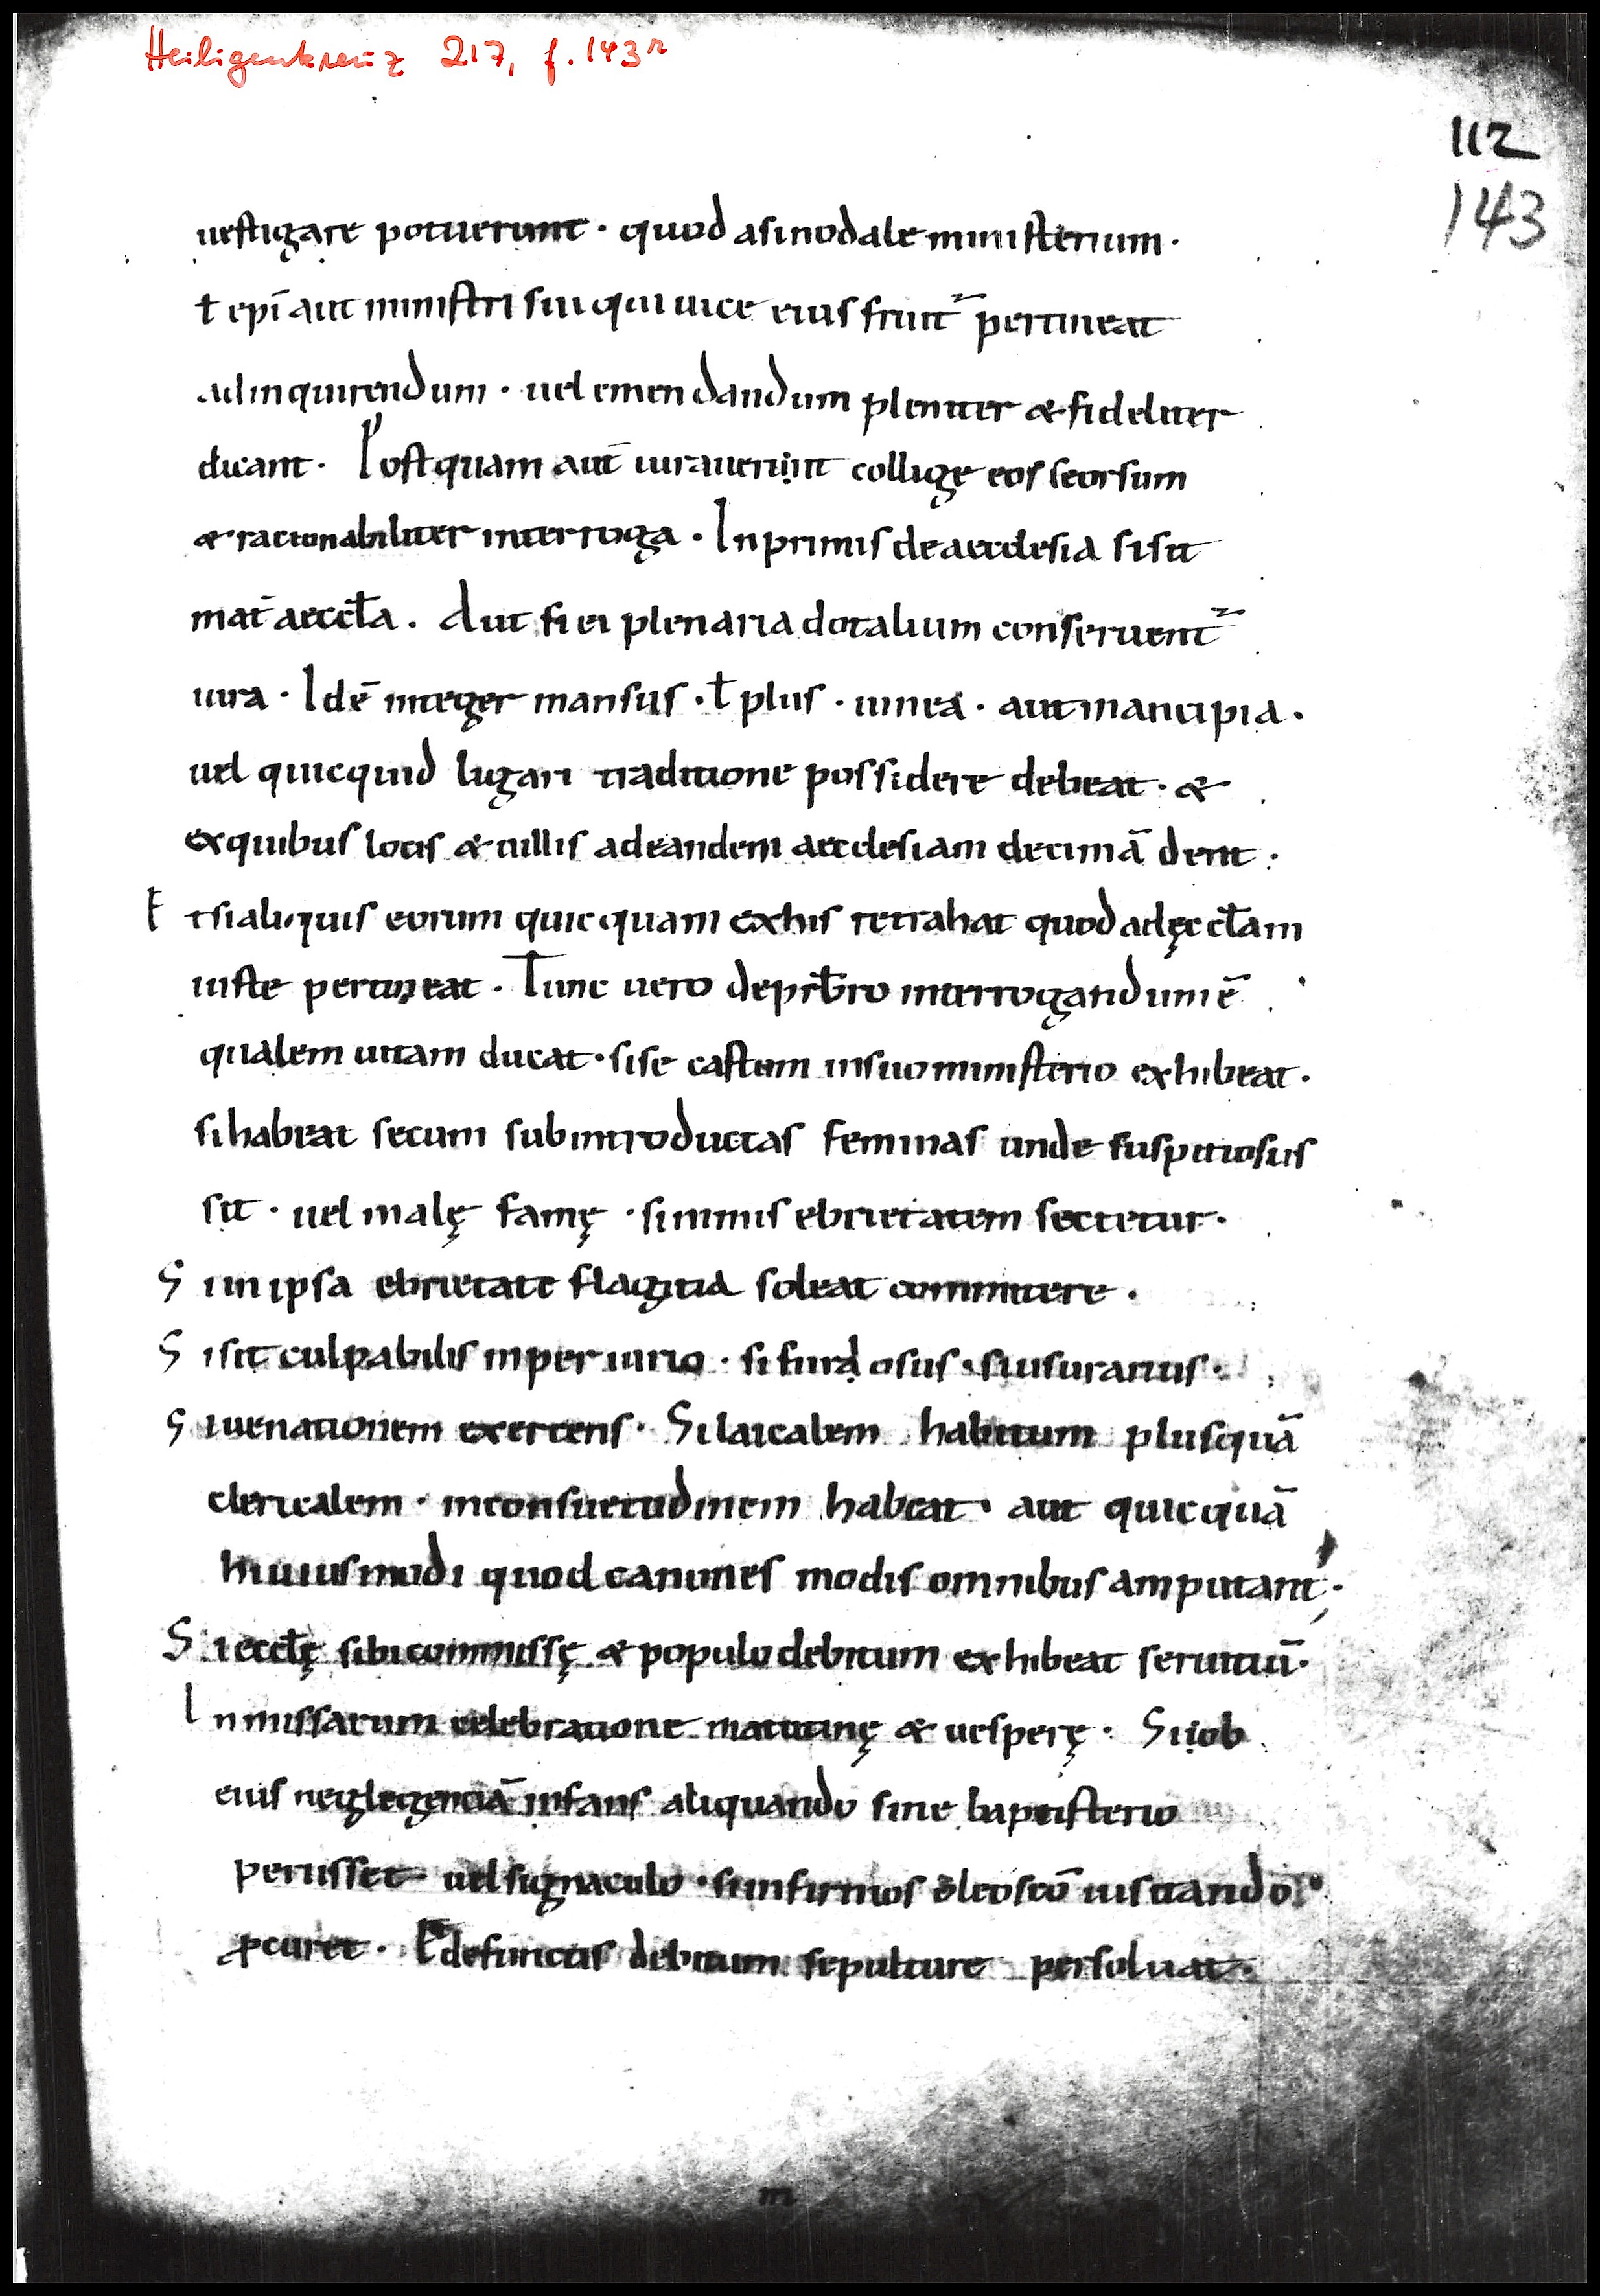 Heiligenkreuz 217, f. 143r
112
143
uestigare potuerunt · quod asinodale ministerium ·
ł epī aut ministri sui qui uice eius frunt᷑ pertineat
adinquirendum · uel emendandum pleniter & fideliter
dicant · Postquam aūt iurauerunt collige eos seorsum
& rationabiliter interroga · Inprimis deaecclesia si sit
mat̄ aeccła . Aut si ei plenaria dotalium conseruent᷑
iura · Idē integer mansus · ł plus · uinea · aut mancipia ·
uel quicquid lugari traditione possidere debeat · &
exquibus locis & uillis adeandem aecclesiam decimā dent ·
Et si aliquis eorum quicquam exhis retrahat quod adęccłam
iuste pertineat · Tunc uero deprƀro interrogandum ē
qualem uitam ducat · si se castum insuo ministerio exhibeat ·
si habeat secum subintroductas feminas unde suspitiosus
sit · uel malę famę · si nimis ebrietatem sectetur ·
Si in ipsa ebrietate flagitia soleat committere ·
Si sit culpabilis inperiurio · si furdosus · si usurarius ·
Si uenationem exercens · Si laicalem habitum plusquā
clericalem · inconsuetudinem habeat · aut quicquā
huiusmodi quod canones modis omnibus amputant ·
Si ecclę sibi commissę & populo debitum exhibeat seruitiū ·
In missarum celebratione matutinę & uesperę · Si ob
eius neglegenciā infans aliquando sine baptisterio
perisset uel signaculo · si infirmos oleo scō uisitando
ꝓcuret · Et defunctis debitum sepulture persoluat ·